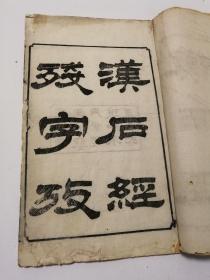 漢石經
殘字攷